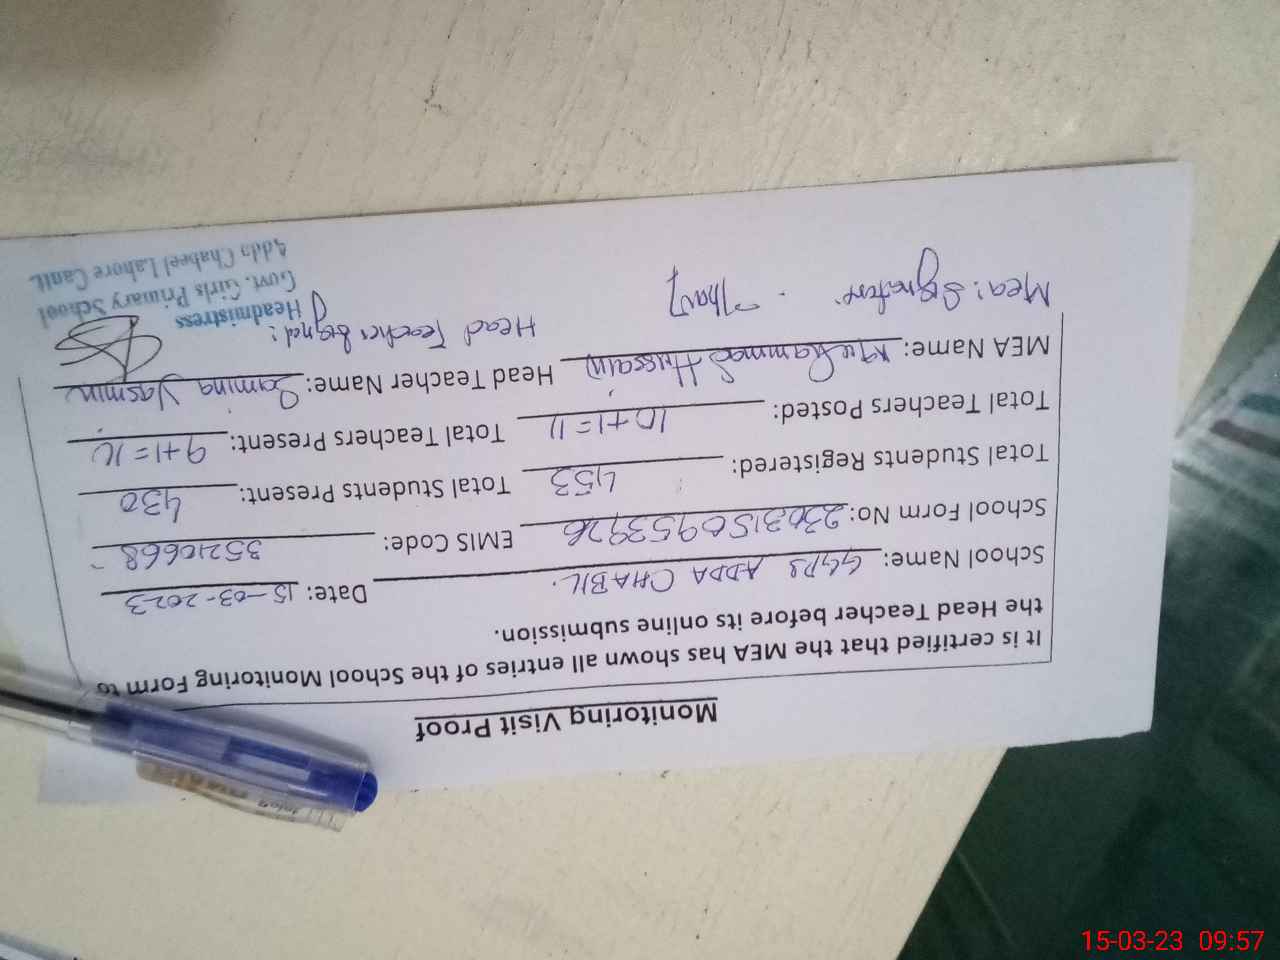 Monitoring Visit Proof
It is certified that the MEA has shown all entries of the School Monitoring Form to
the Head Teacher before its online submission.
School Name: GGPS ADDA CHABIL. Date: 15-03-2023
School Form No: EMIS Code: 35210668
Total Students Registered: 453 Total Students Present: 430
Total Teachers Posted: 10+1=11 Total Teachers Present: 9+1=10
MEA Name: Muhammad Hussain Head Teacher Name: Samina Yasmin
Mea: Signature: Head Teacher Signd:
Headmistress
Govt. Girls Primary School
Adda Chabeel Lahore Cantt.
15-03-23 09:57